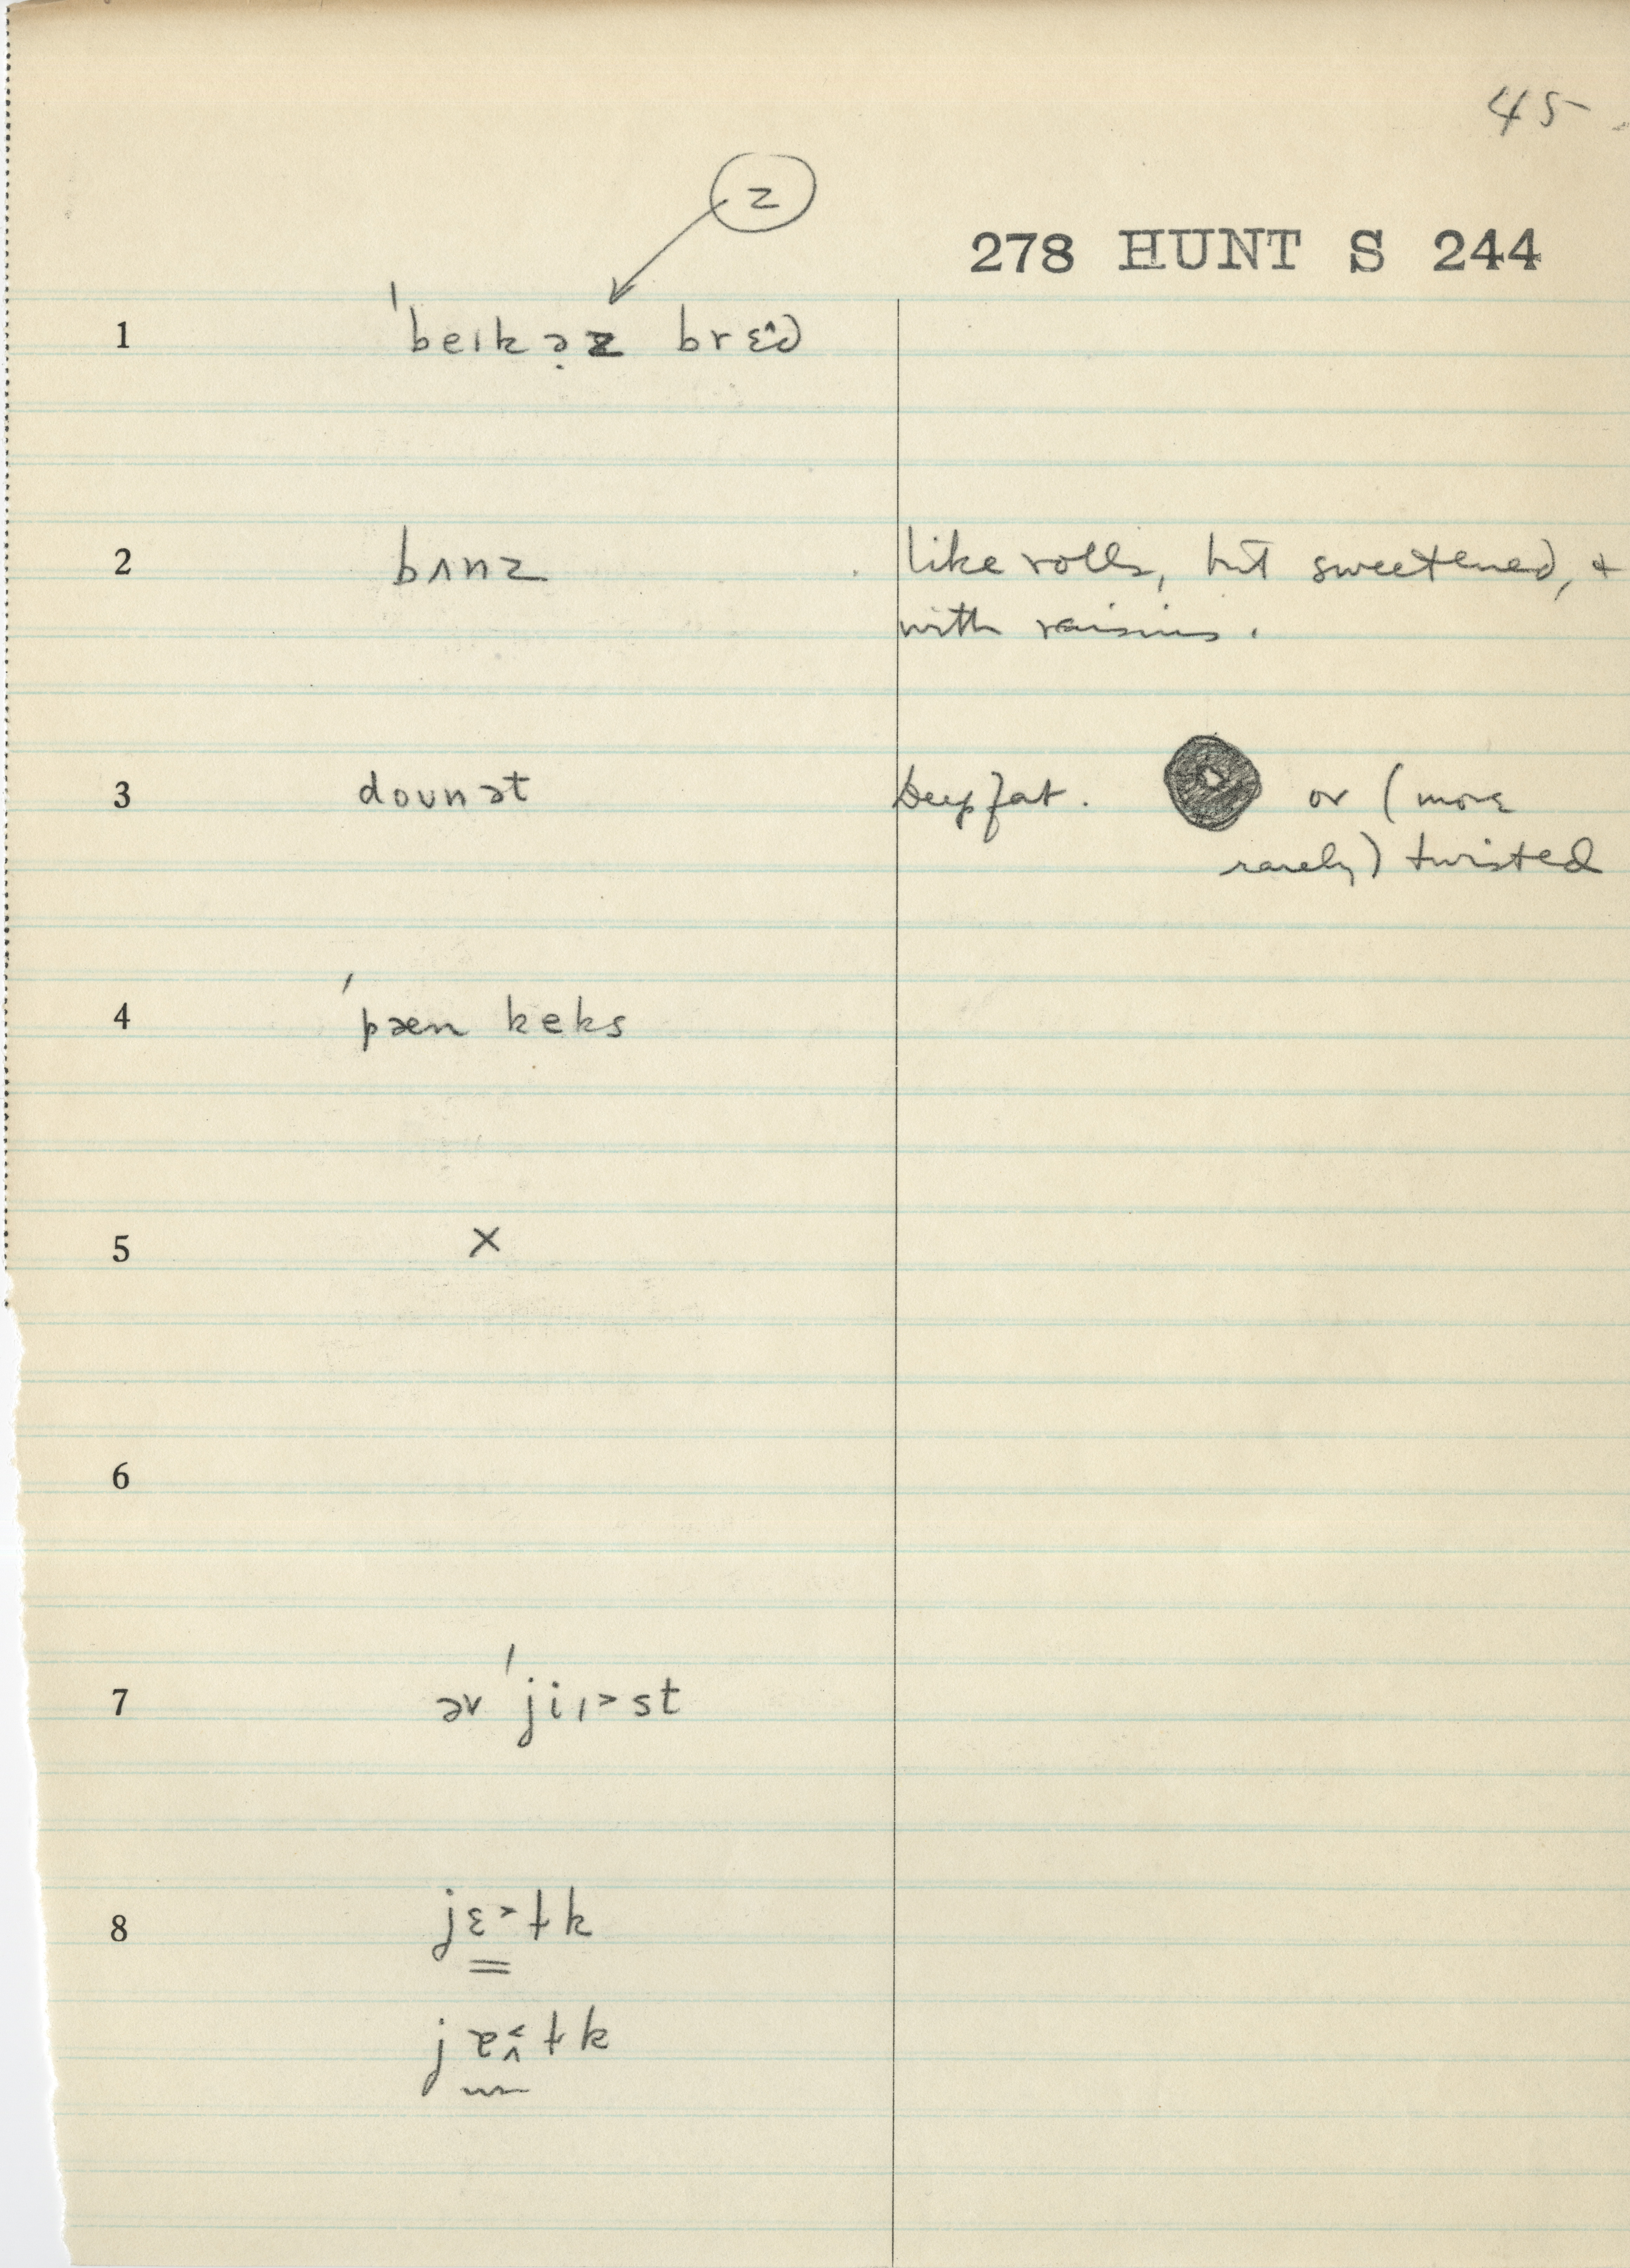 45
z
278 HUNT S 244
1 ˈbeɪkə̣z brɛ̂d
2 bʌnz like rolls, but sweetened, +
with raisins.
3 doʊnət Deep fat. or (more
rarely) twisted
4 ˈpæn keks
5 X
6
7 əv ˈjiɪ˃st
8 jɛ˃ɫk
jæ˂˄ɫk